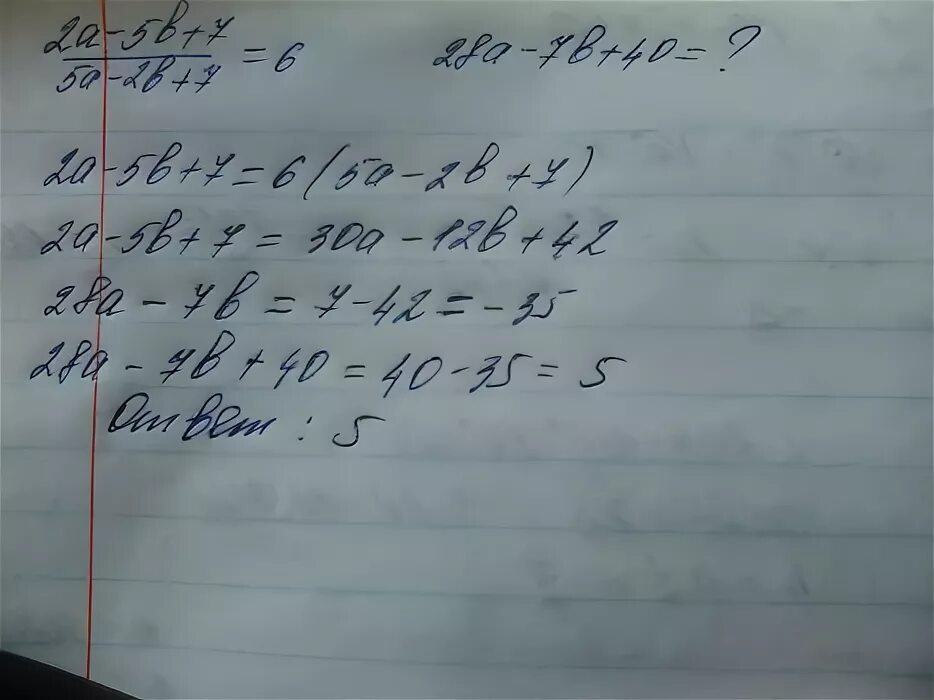 2a-5b+7/5a-2b+7 = 6 28a-7b+40=?
2a-5b+7=6(5a-2b+7)
2a-5b+7=30a-12b+42
28a-7b=7-42=-35
28a-7b+40=40-35=5
Ответ: 5